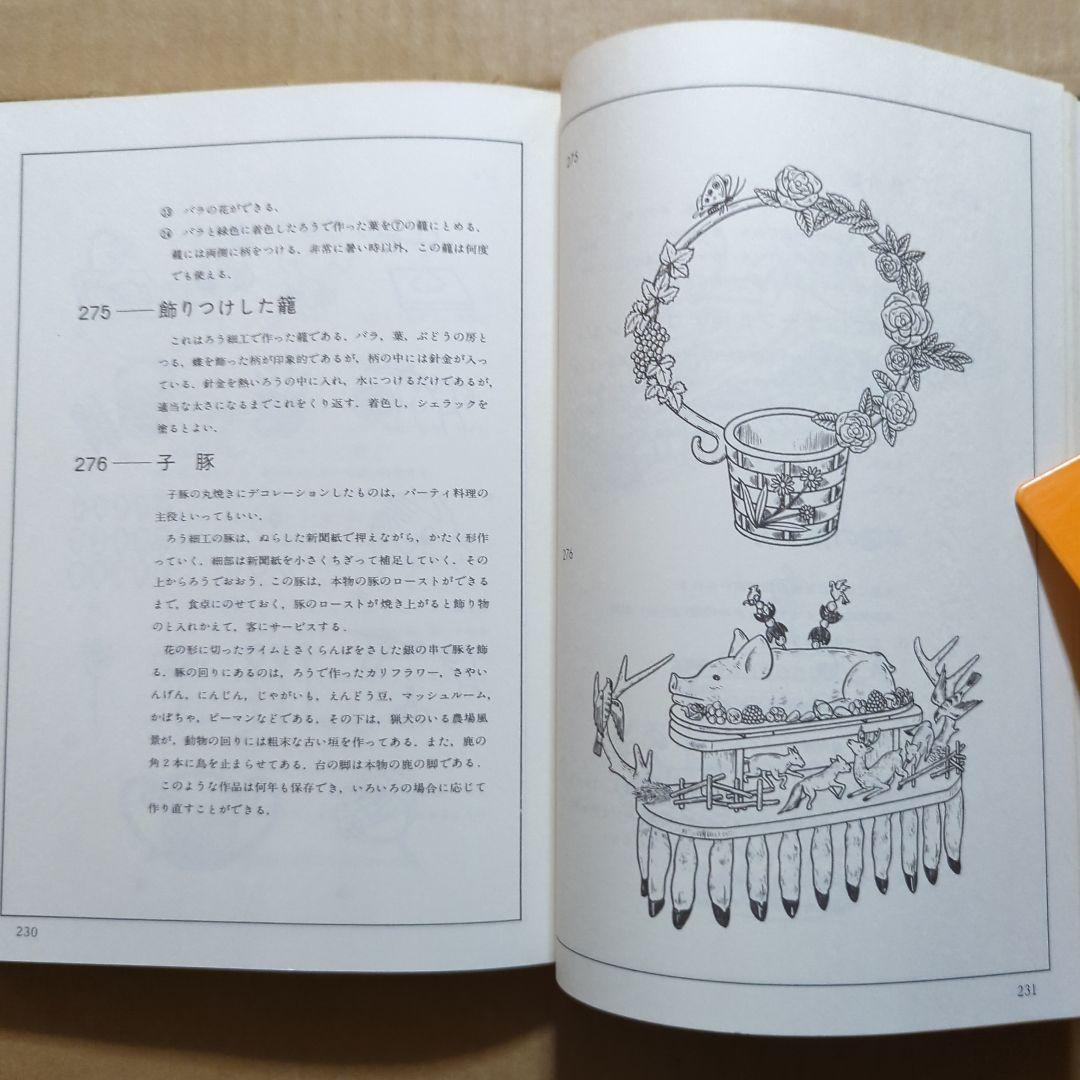 ㉓ バラの花ができる．
㉔ バラと緑色に着色したろうで作った葉を⑦の籠にとめる．
籠には両側に柄をつける．非常に暑い時以外，この籠は何度
でも使える．
275——飾りつけした籠
これはろう細工で作った籠である．バラ，葉，ぶどうの房と
つる，蝶を飾った柄が印象的であるが，柄の中には針金が入っ
ている．針金を熱いろうの中に入れ，水につけるだけであるが，
適当な太さになるまでこれをくり返す．着色し，シェラックを
塗るとよい．
276——子 豚
子豚の丸焼きにデコレーションしたものは，パーティ料理の
主役といってもいい．
ろう細工の豚は，ぬらした新聞紙で押えながら，かたく形作
っていく．細部は新聞紙を小さくちぎって補足していく．その
上からろうでおおう．この豚は，本物の豚のローストができる
まで，食卓にのせておく，豚のローストが焼き上がると飾り物
のと入れかえて，客にサービスする．
花の形に切ったライムとさくらんぼをさした銀の串で豚を飾
る．豚の回りにあるのは，ろうで作ったカリフラワー，さやい
んげん，にんじん，じゃがいも，えんどう豆，マッシュルーム，
かぼちゃ，ピーマンなどである．その下は，猟犬のいる農場風
景が，動物の回りには粗末な古い垣を作ってある．また，鹿の
角2本に鳥を止まらせてある．台の脚は本物の鹿の脚である．
このような作品は何年も保存でき，いろいろの場合に応じて
作り直すことができる．
230
275
276
231